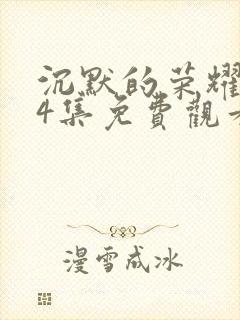 沉默的荣耀
4集免費觀看
漫雪成冰